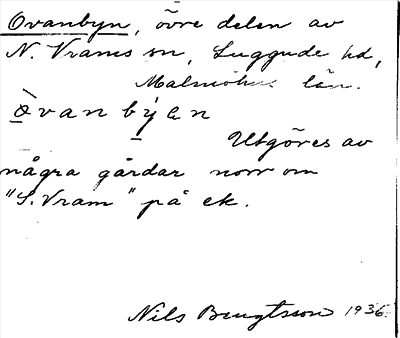 Ovanbyn, övre delen av
N. Vrams sn, Luggude hd,
Malmöhus län.
òvanbýɛn
Utgöres av
några gårdar norr om
"S. Vram" på ek.
Nils Bengtsson 1936.